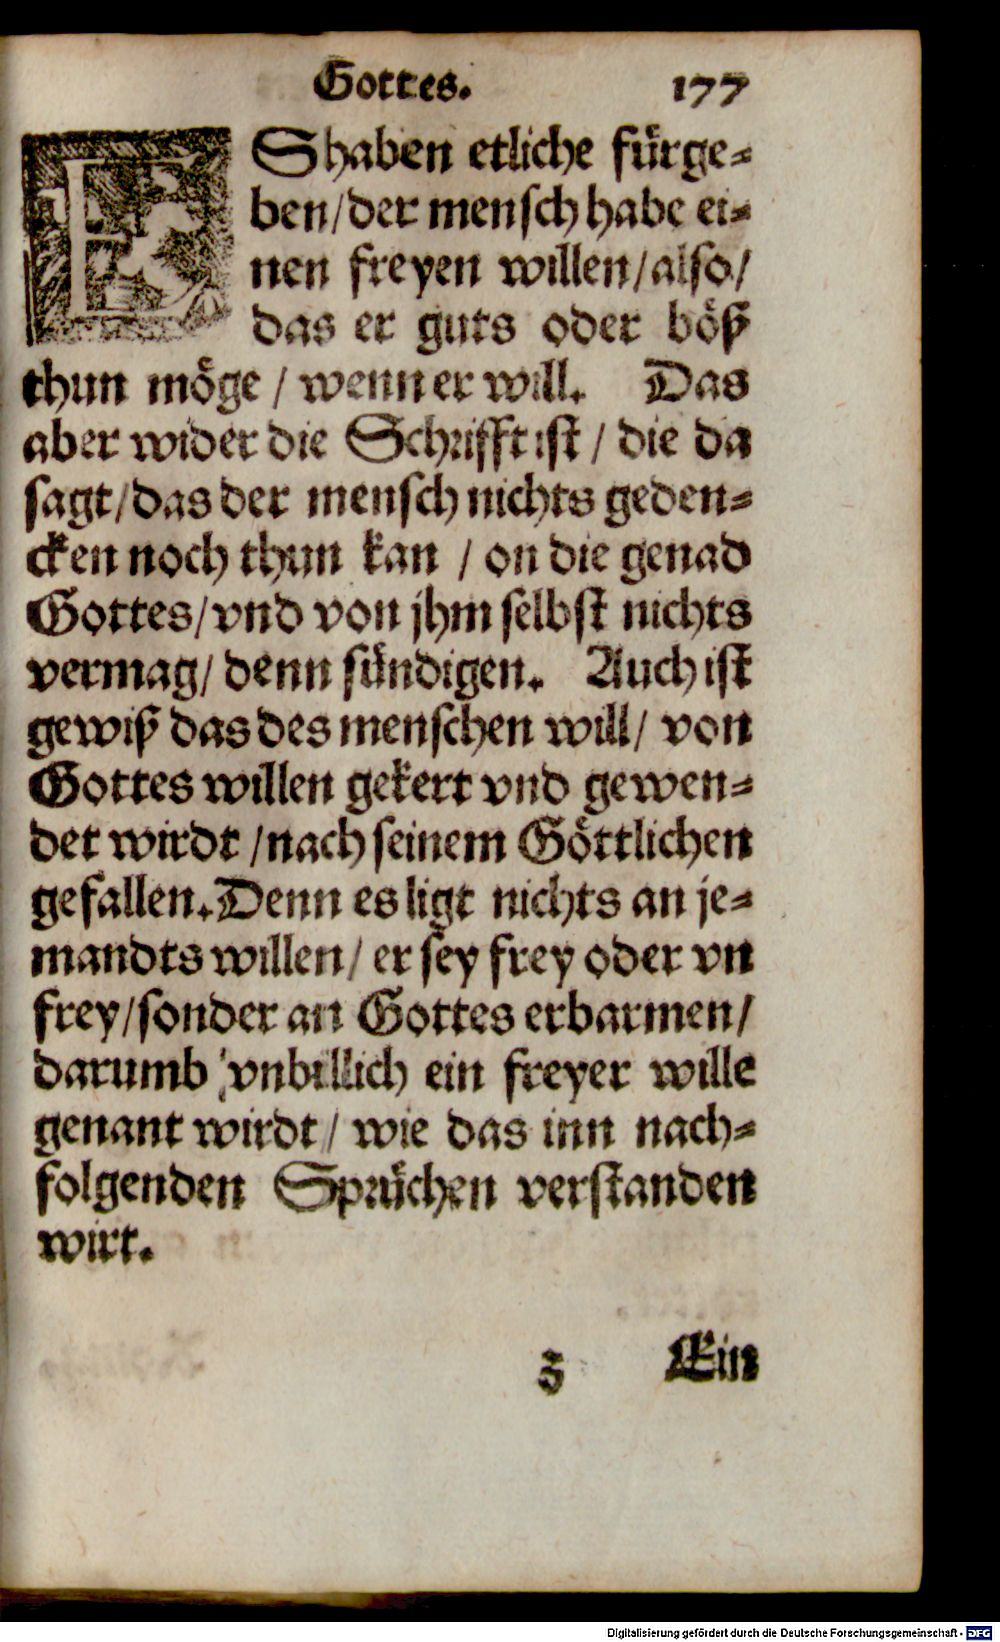 Gottes. 177
ES haben etliche fürge=
ben/der mensch habe ei=
nen freyen willen/also/
das er guts oder böß
thun möge / wenn er will. Das
aber wider die Schrifft ist / die da
sagt/das der mensch nichts geden=
cken noch thun kan / on die genad
Gottes/vnd von jhm selbst nichts
vermag/ denn sündigen. Auch ist
gewiß das des menschen will/ von
Gottes willen gekert vnd gewen=
det wirdt /nach seinem Göttlichen
gefallen. Denn es ligt nichts an je=
mandts willen/ er sey frey oder vn
frey/sonder an Gottes erbarmen/
darumb vnbillich ein freyer wille
genant wirdt/ wie das inn nach=
folgenden Sprüchen verstanden
wirt.
z Ein
Digitalisierung gefördert durch die Deutsche Forschungsgemeinschaft - DFG